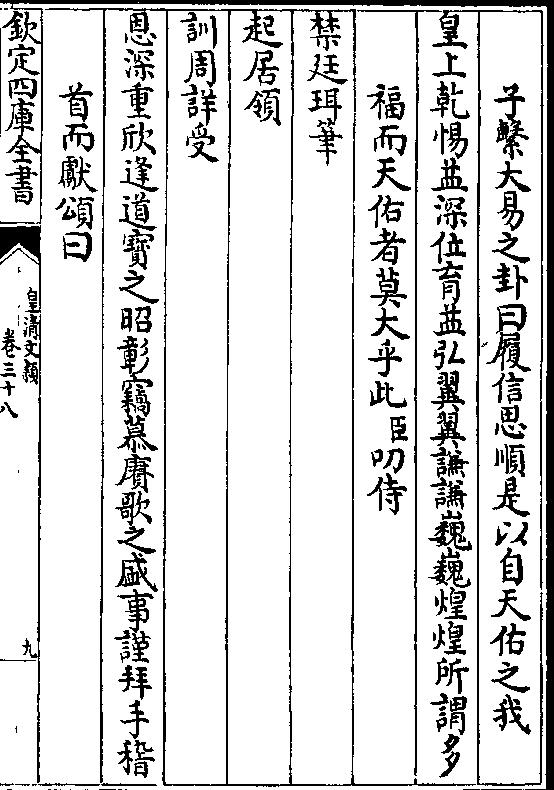 子繫大易之卦曰履信思順是以自天佑之我
皇上乾惕益深位育益弘翼翼謙謙巍巍煌煌所謂多
福而天佑者莫大乎此臣叨侍
禁廷珥筆
起居領
訓周詳受
恩深重欣逢道寶之昭彰竊慕賡歌之盛事謹拜手稽
首而獻頌曰
欽定四庫全書
皇清文穎
卷三十八
九